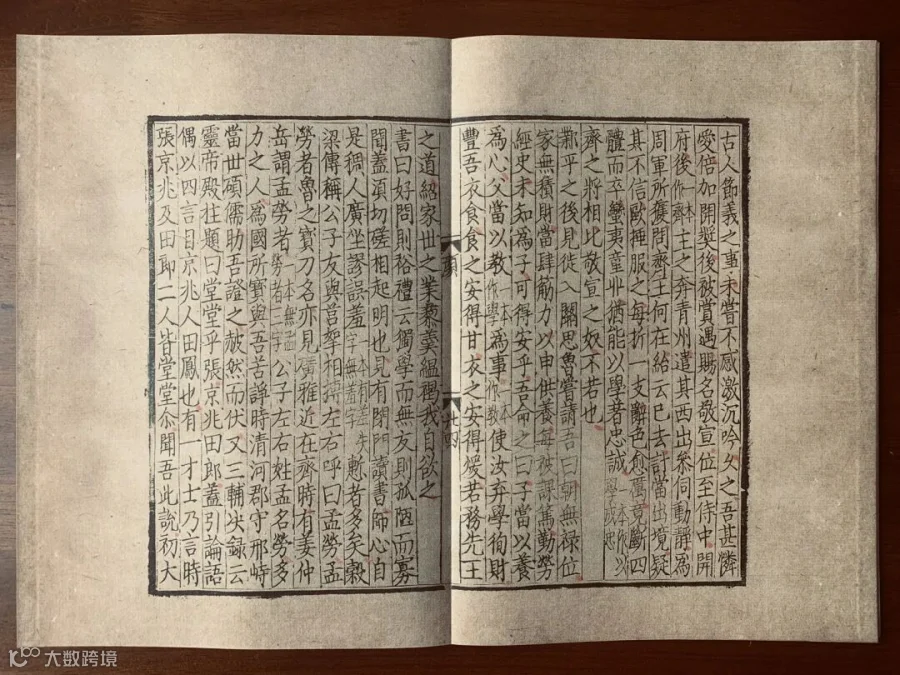 古人節義之事未嘗不感激沉吟久之吾甚憐
愛倍加開獎後被賞遇賜名敬宣位至侍中開
府後一作齊主之奔青州遣其西出參伺動靜為
周軍所獲問齊王何在紿云已去計當出境疑
其不信歐捶服之每折一支辭色愈厲竟斷四
體而卒蠻夷童丱猶能以學著忠誠一本作以學成忠
齊之將相比敬宣之奴不若也
鄴平之後見徙入關思魯嘗謂吾曰朝無祿位
家無積財當肆筋力以申供養每被課篤勤勞
經史未知為子可得安乎吾命之曰子當以養
為心父當以教一本作學為事一本作教使汝棄學徇財
豐吾衣食食之安得甘衣之安得煖若務先王
顏
廿四
之道紹家世之業藜羹縕褐我自欲之
書曰好問則裕禮云獨學而無友則孤陋而寡
聞蓋須切磋相起明也見有閉門讀書師心自
是稠人廣坐謬誤羞一本有差字無羞字慙者多矣穀
梁傳稱公子友與莒挐相搏左右呼曰孟勞孟
勞者魯之寶刀名亦見廣雅近在齊時有姜仲
岳謂孟勞者一本無孟勞者三字公子左右姓孟名勞多
力之人為國所寶與吾苦諍時清河郡守邢峙
當世碩儒助吾證之赧然而伏又三輔決錄云
靈帝殿柱題曰堂堂乎張京兆田郎蓋引論語
偶以四言目京兆人田鳳也有一才士乃言時
張京兆及田郎二人皆堂堂尒聞吾此說初大
大数跨境